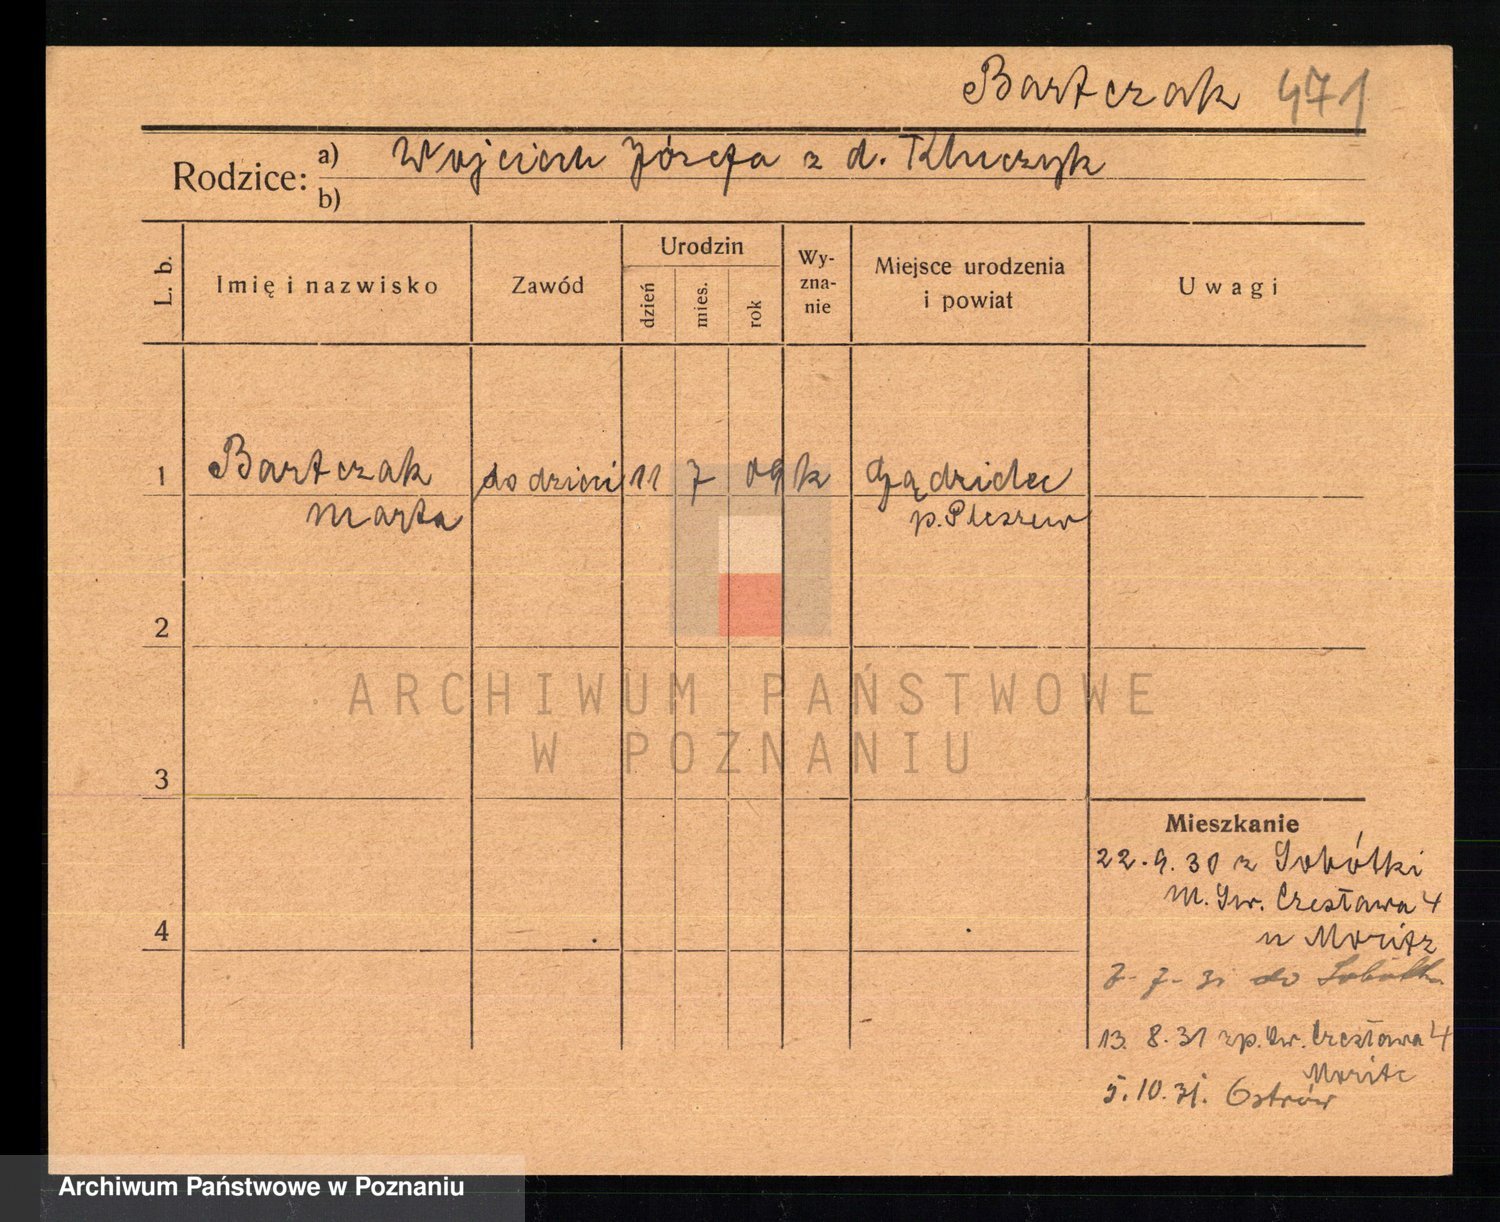 Bartczak 471
Rodzice: a) Wojciech Józefa z d. Kluczyk
b)
L. b. Imię i nazwisko Zawód Urodzin dzień mies. rok Wyznanie Miejsce urodzenia i powiat Uwagi
1 Bartczak do dzieci 11 7 09 k
Marta p. Pleszew
2
ARCHIWUM PAŃSTWOWE
W POZNANIU
3
Mieszkanie
22.9.30 z Sobótki
m. Św. Czesława 4
u Moritz
4
7-7-31 do Sobótka
13. 8.31 zp. Św. Czesława 4
Moritz
5.10.31. Ostrów
Archiwum Państwowe w Poznaniu